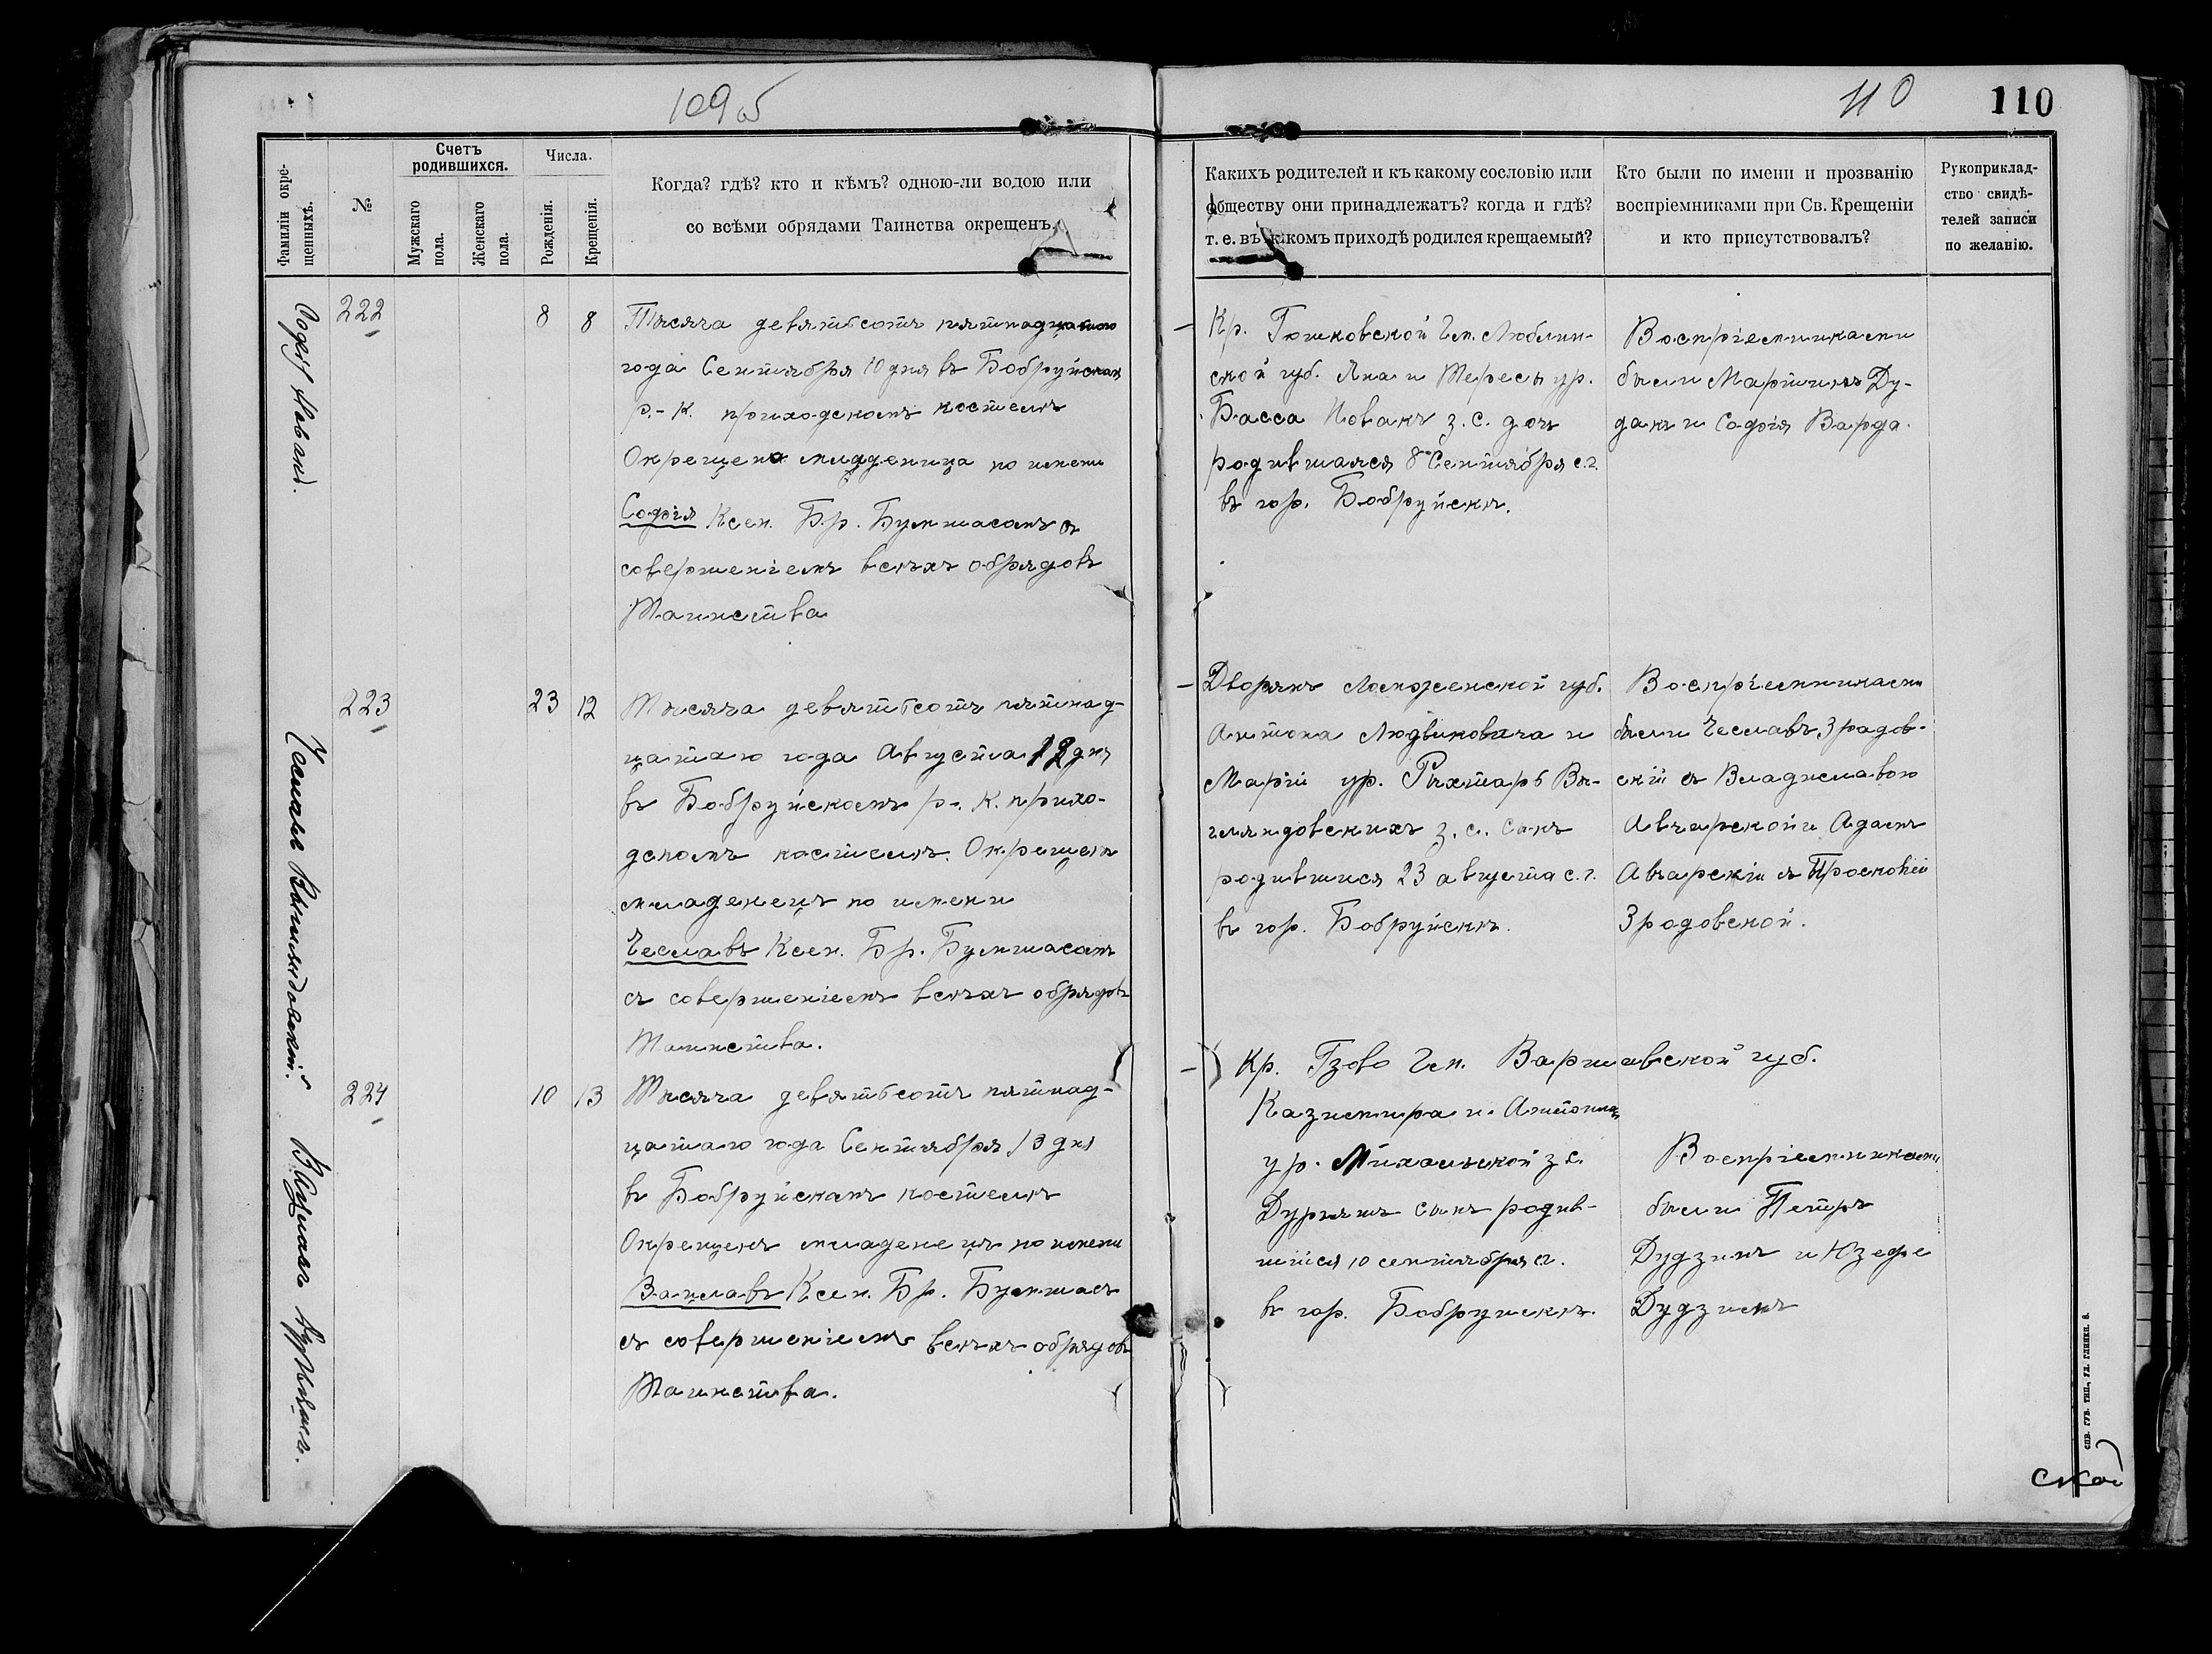 109 об
110
110
Фамиліи окре-
щенныхъ.
№
Счетъ
родившихся.
Мужскаго
пола.
Женскаго
пола.
Числа.
Рожденія.
Крещенія.
Когда? гдѣ? кто и кѣмъ? одною-ли водою или
со всѣми обрядами Таинства окрещенъ.
Какихъ родителей и къ какому сословію или
обществу они принадлежатъ? когда и гдѣ?
т. е. въ какомъ приходѣ родился крещаемый?
Кто были по имени и прозванію
воспріемниками при Св. Крещеніи
и кто присутствовалъ?
Рукоприклад-
ство свидѣ-
телей записи
по желанію.
Софія Новакъ.
222
8
8
Тысяча девятьсотъ пятнадцатаго
года Сентября 10 дня въ Бобруйскомъ
р.-к. приходскомъ костелѣ
Окрещена младеница по имени
Софія Ксен. Бр. Бумшасомъ съ
совершеніемъ всѣхъ обрядовъ
Таинства
Кр. Гошковской Гм. Люблин-
ской губ. Яна и Тересы ур.
Басса Новакъ з. с. дочь
родившаяся 8 Сентября с. г.
въ гор. Бобруйскѣ.
Воспріемниками
были Мартинъ Ду-
дакъ и Софія Варда.
Чеславъ
223
23
12
Тысяча девятьсотъ пятнад-
цатаго года Августа 12 дня
въ Бобруйскомъ р.-к. прихо-
дскомъ костелѣ. Окрещенъ
младенецъ по имени
Чеславъ Ксен. Бр. Бумшасомъ
съ совершеніемъ всѣхъ обрядовъ
Таинства.
Дворянъ Ломженской губ.
Антона Людвиковича и
Маріи ур. Рыхтаръ Вы-
з. с. сынъ
родившійся 23 августа с. г.
въ гор. Бобруйскѣ.
Воспріемниками
были Чеславъ Зрадов-
скій съ Владиславою
и Адамъ
съ Просковіей
Зродовской.
Вацлавъ
224
10
13
Тысяча девятьсотъ пятнад-
цатаго года Сентября 13 дня
въ Бобруйскомъ костелѣ
Окрещенъ младенецъ по имени
Вацлавъ Ксен. Бр. Бумшасъ
съ совершеніемъ всѣхъ обрядовъ
Таинства.
Кр. Гзово Гм. Варшавской губ.
Казимира и Антонины
ур. Михальской з с.
сынъ родив-
шійся 10 сентября сг.
въ гор. Бобруйскѣ.
Воспріемниками
были Петръ
Дудзикъ и Юзефа
Дудзикъ
спб. губ. тип., ул. глинки. 6.
ской